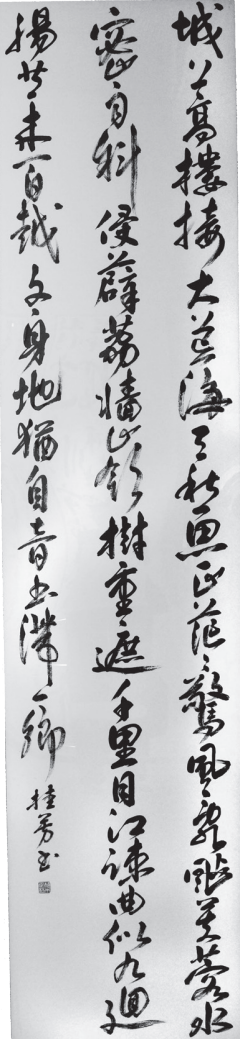 城上高樓接大荒海天愁思正茫々驚風亂颭芙蓉水
密雨斜侵薜荔墻嶺樹重遮千里目江流曲似九迴
腸共來百越文身地猶自音書滯一鄉 桂芳書